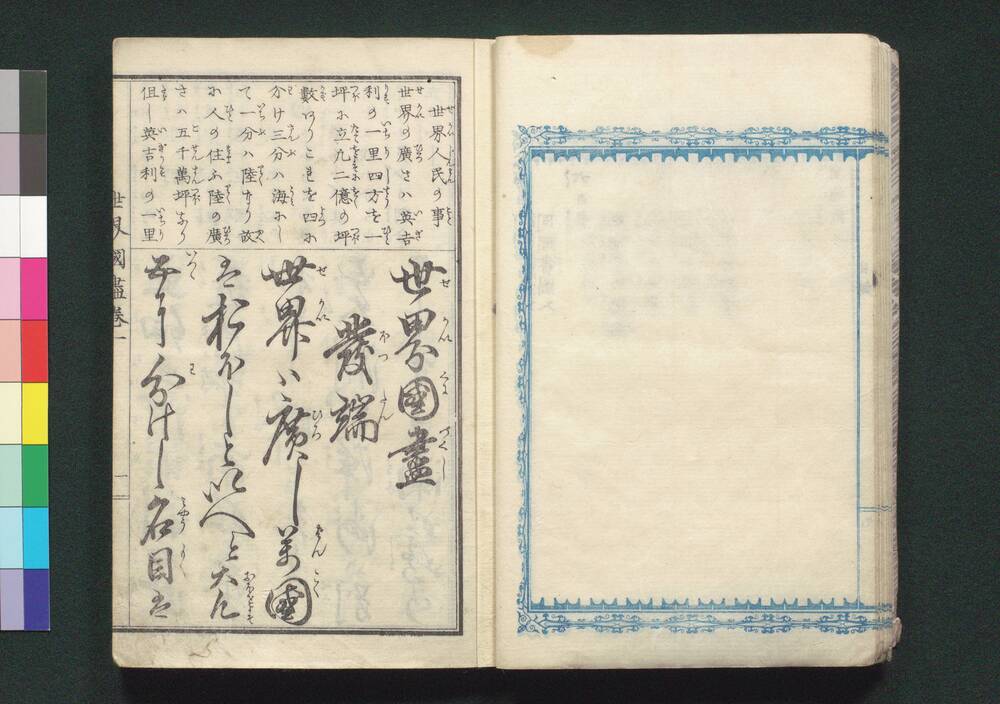 世界人民の事
世界の廣さハ英吉
利の一里四方を一
坪に立九二億の坪
数ありこれを四に
分け三分ハ海にし
て一分ハ陸なり故
に人の住ふ陸の廣
さハ五千萬坪あり
但し英吉利の一里
世界國盡
發端
世界ハ廣し萬國
はおほしといへと大凡
五に分けし名目は
世界國盡卷一
一